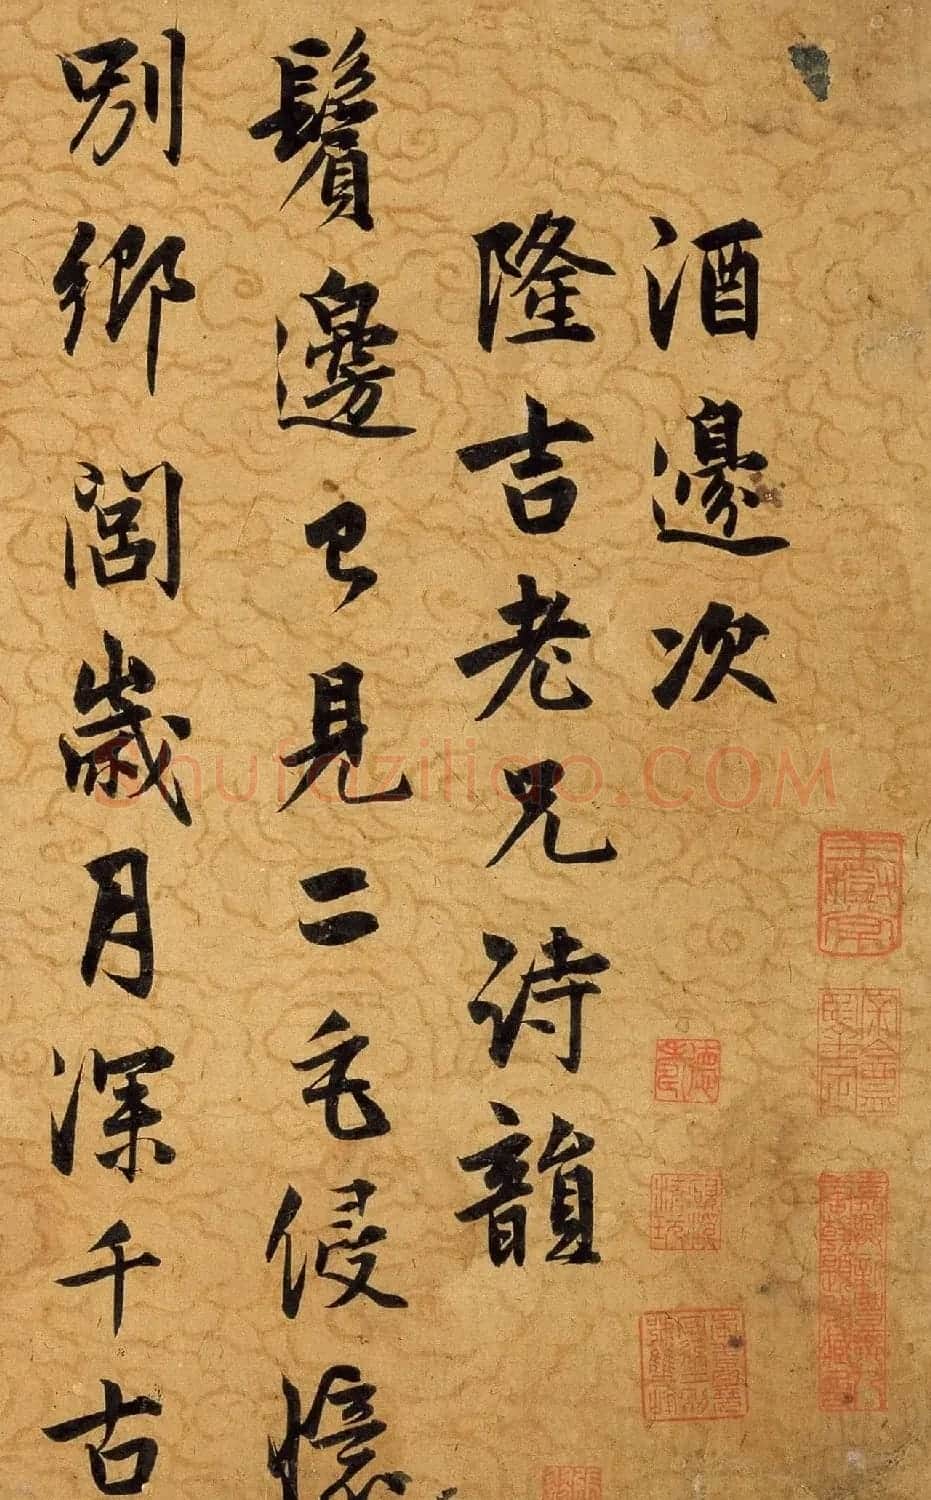 酒邊次
隆吉老兄詩韻
鬢邊已見二毛侵憶
別鄉閭歲月深千古
Shufaziliao.COM